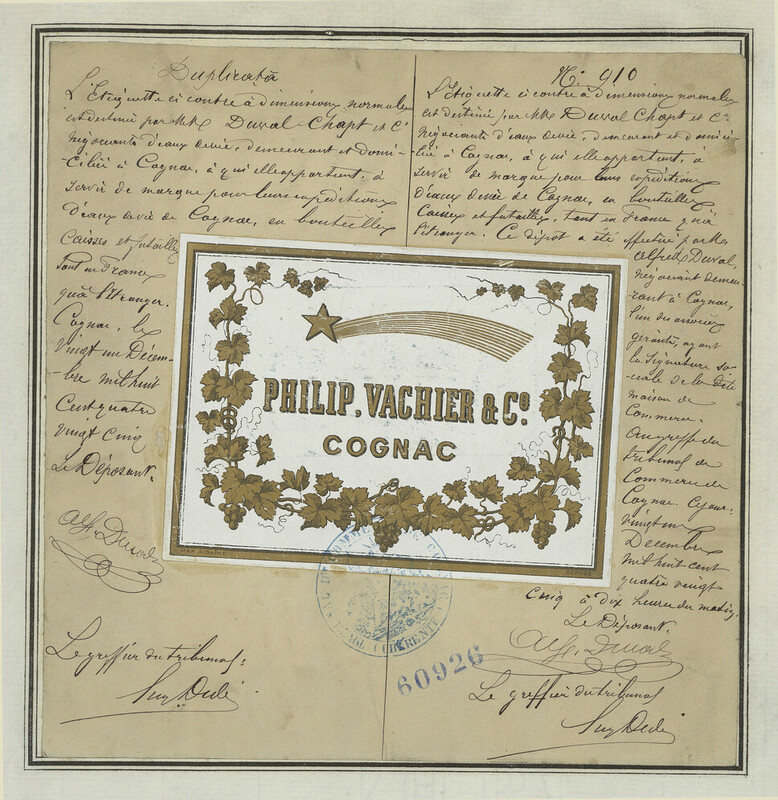 Duplicata
L'Etiquette ci contre à dimensions normales
est destinée par MM. Duval Chapt et Cie
négociants d'eaux de vie, demeurant et domi-
ciliés à Cognac, à qui elle appartient, à
servir de marque pour leurs expéditions
d'eaux de vie de Cognac, en bouteilles
Caisses et futailles
tant en France
qu'à l'étranger.
Cognac, le
vingt un Décem-
bre mil huit
cent quatre
vingt cinq
Le Déposant.
Alf. Duval
Le greffier du tribunal:
No. 910
L'Etiquette ci contre à dimensions normales
est destinée par MM. Duval Chapt et Cie
négociants d'eaux de vie, demeurant et domici-
liés à Cognac, à qui elle appartient, à
servir de marque pour leurs expéditions
d'eaux de vie de Cognac, en bouteilles
Caisses et futailles, tant en France qu'à
l'étranger. Ce dépot a été effectué par Mr.
Alfred Duval,
négociant demeu-
rant à Cognac,
l'un des associés
gérants, ayant
la signature so-
ciale de la dite
maison de
Commerce.
Au greffe du
tribunal de
Commerce de
Cognac. Ce jour
vingt un
Décembre
mil huit cent
quatre vingt
cinq à dix heures du matin.
Le Déposant.
Alf. Duval
Le greffier du tribunal
PHILIP, VACHIER & Co.
COGNAC
60926